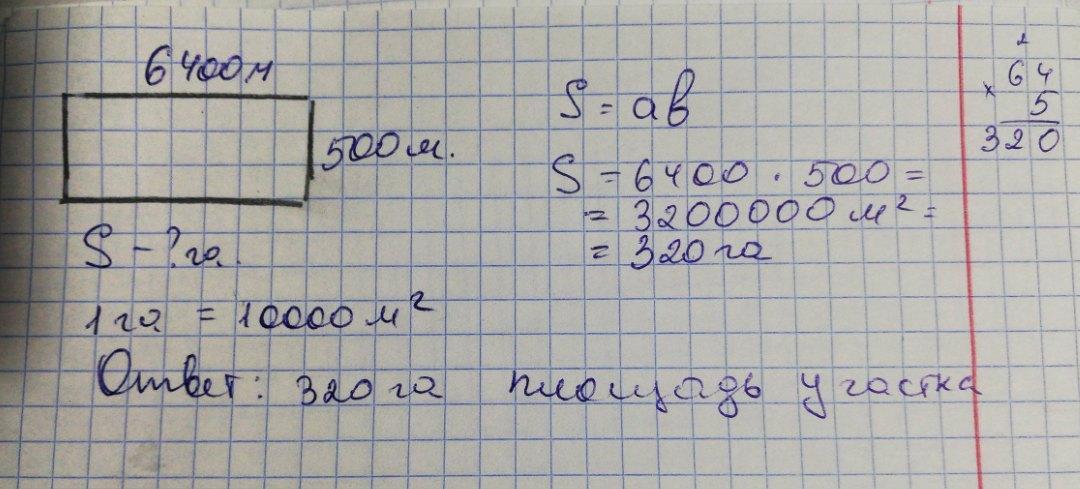 6400м
500м.
S - ? га.
1 га = 10000 м²
S = ав
S = 6400 · 500 =
= 3200000 м² =
= 320 га
2
64
× 5
320
Ответ: 320 га площадь участка